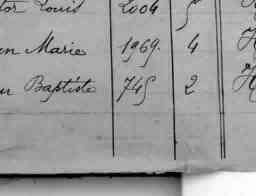 tor Louis 2004 5 H
an Marie 1969. 4 H
Baptiste 745 2 H